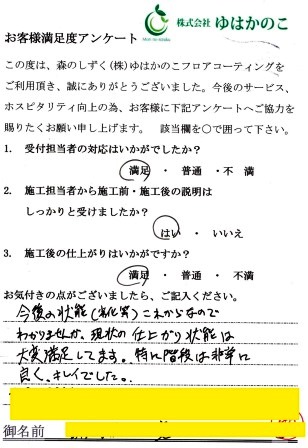 株式会社 ゆはかのこ
お客様満足度アンケート
この度は、森のしずく(株)ゆはかのこフロアコーティングを
ご利用頂き、誠にありがとうございました。今後のサービス、
ホスピタリティ向上の為、お客様に下記アンケートへご協力を
賜りたくお願い申し上げます。 該当欄を○で囲って下さい。
1. 受付担当者の対応はいかがでしたか?
満足 ・ 普通 ・不 満
2. 施工担当者から施工前・施工後の説明は
しっかりと受けましたか?
はい ・ いいえ
3. 施工後の仕上がりはいかがですか?
満足 ・ 普通 ・ 不満
お気付きの点がございましたら、ご記入ください。
今後の状態(劣化等)これからなので
わかりませんが、現状の仕上がり状態は
大変満足してます。特に階段は非常に
良く、キレイでした。
御名前